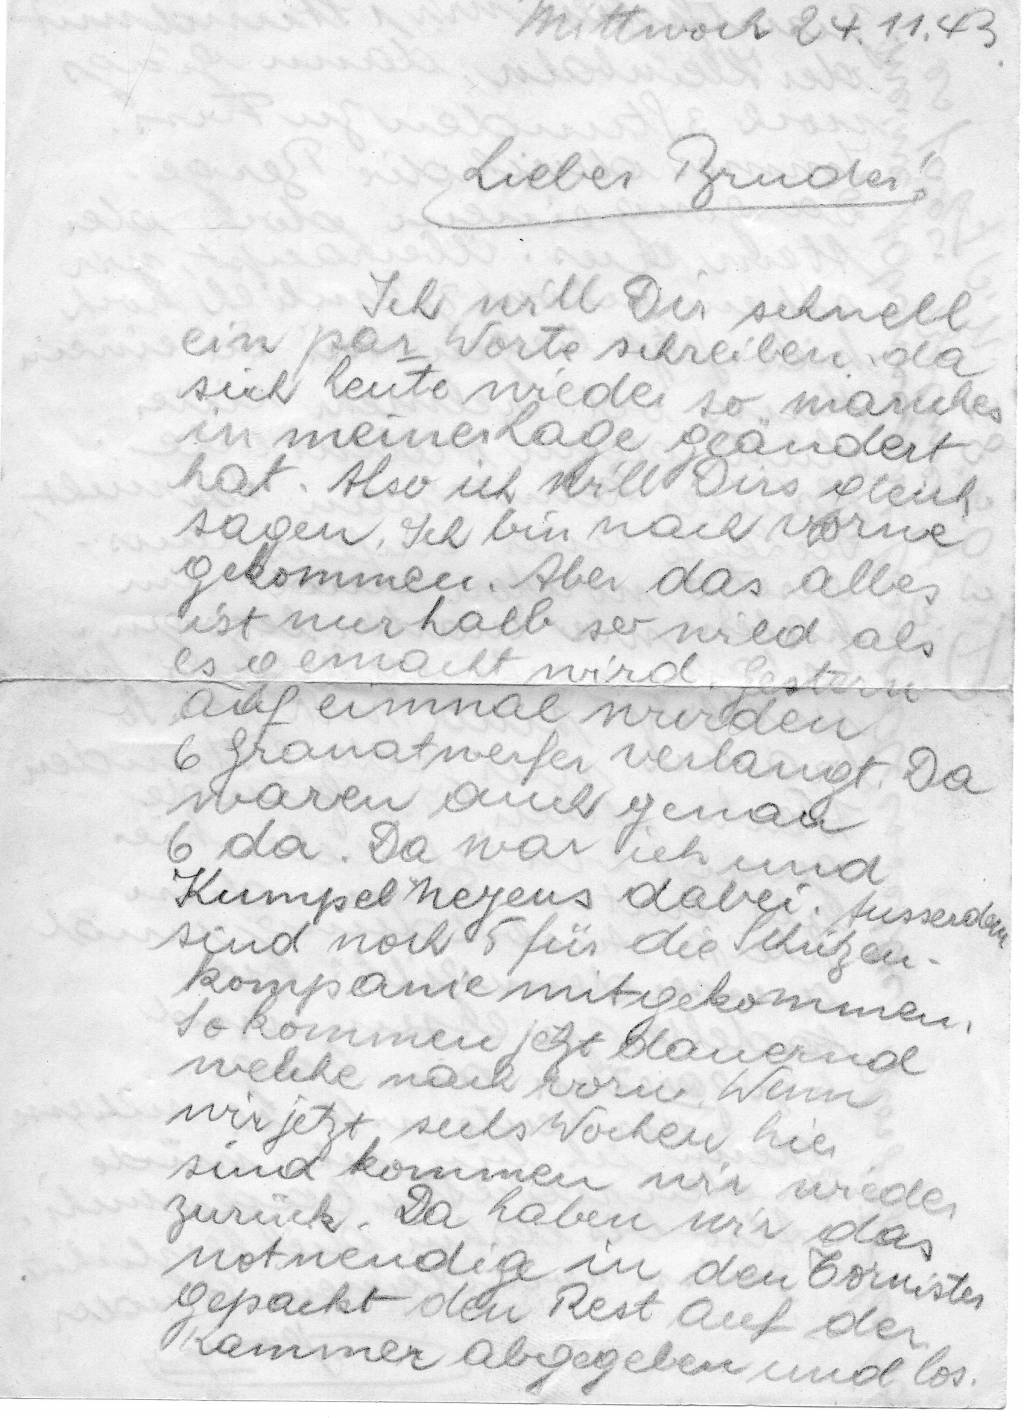 Mittwoch 24.11.43
Lieber Bruder!
Ich will Dir schnell
ein par Worte schreiben, da
sich heute wieder so manches
in meiner Lage geändert
hat. Also ich will Dirs gleich
sagen, Ich bin nach vorne
gekommen. Aber das alles
ist nur halb so wild als
es gemacht wird. Gestern
auf einmal wurden
6 Granatwerfer verlangt. Da
waren auch genau
6 da. Da war ich und
Kumpel dabei. Ausserdem
sind noch 5 für die Schützen-
kompanie mitgekommen.
So kommen jetzt dauernd
welche nach vorn. Wenn
wir jetzt sechs Wochen hier
sind kommen wir wieder
zurück. Da haben wir das
notwendige in den Tornister
gepackt den Rest auf der
Kammer abgegeben und los.